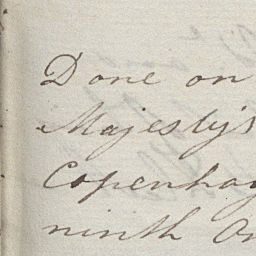 Done on
Majesty's
Copenhag
ninth